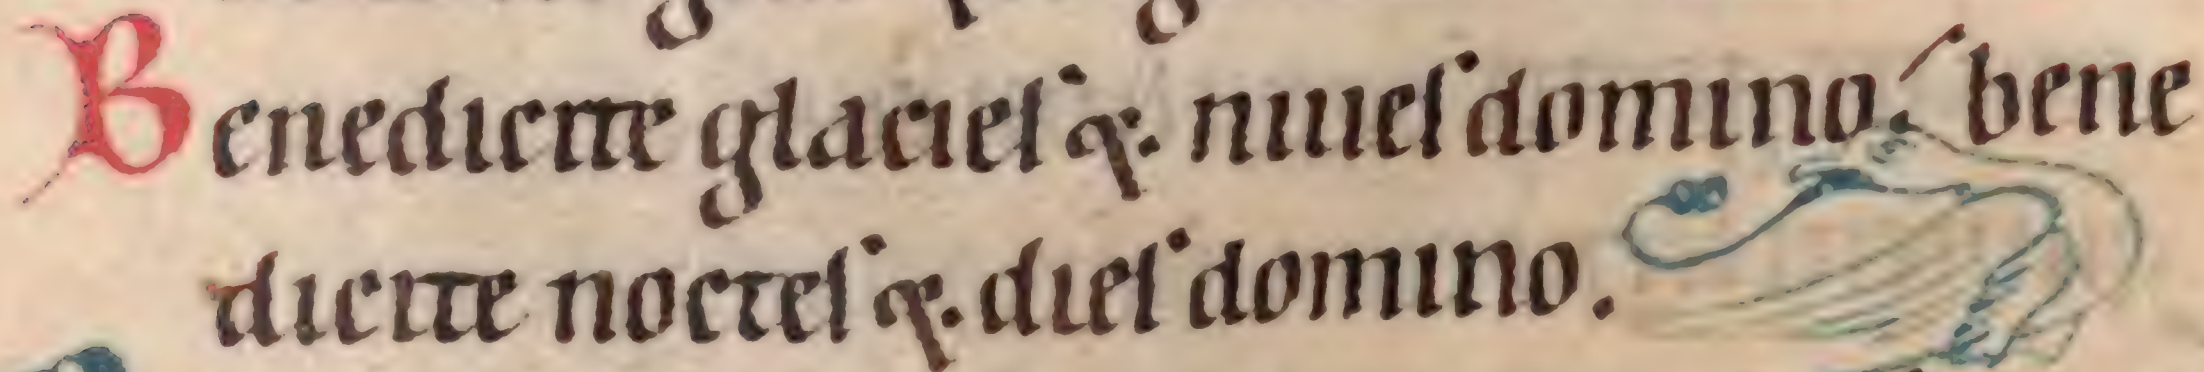 Benedicite glacieſ ⁊ niueſ domino. bene
dicite nocteſ ⁊ dieſ domino.